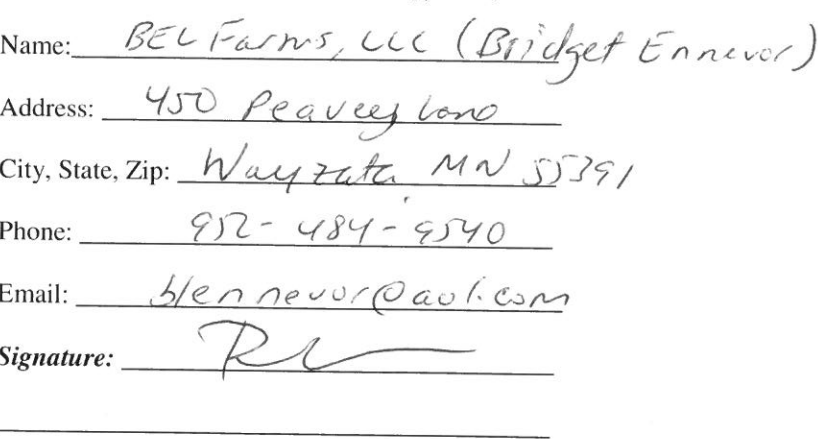 Name: BEL Farms, LLC (Bridget Ennevor)
Address: 450 Peavey Lane
City, State, Zip: Wayzata MN 55391
Phone: 952-484-9540
Email: blennevor@aol.com
Signature: